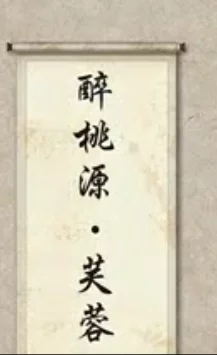 醉桃源·芙蓉